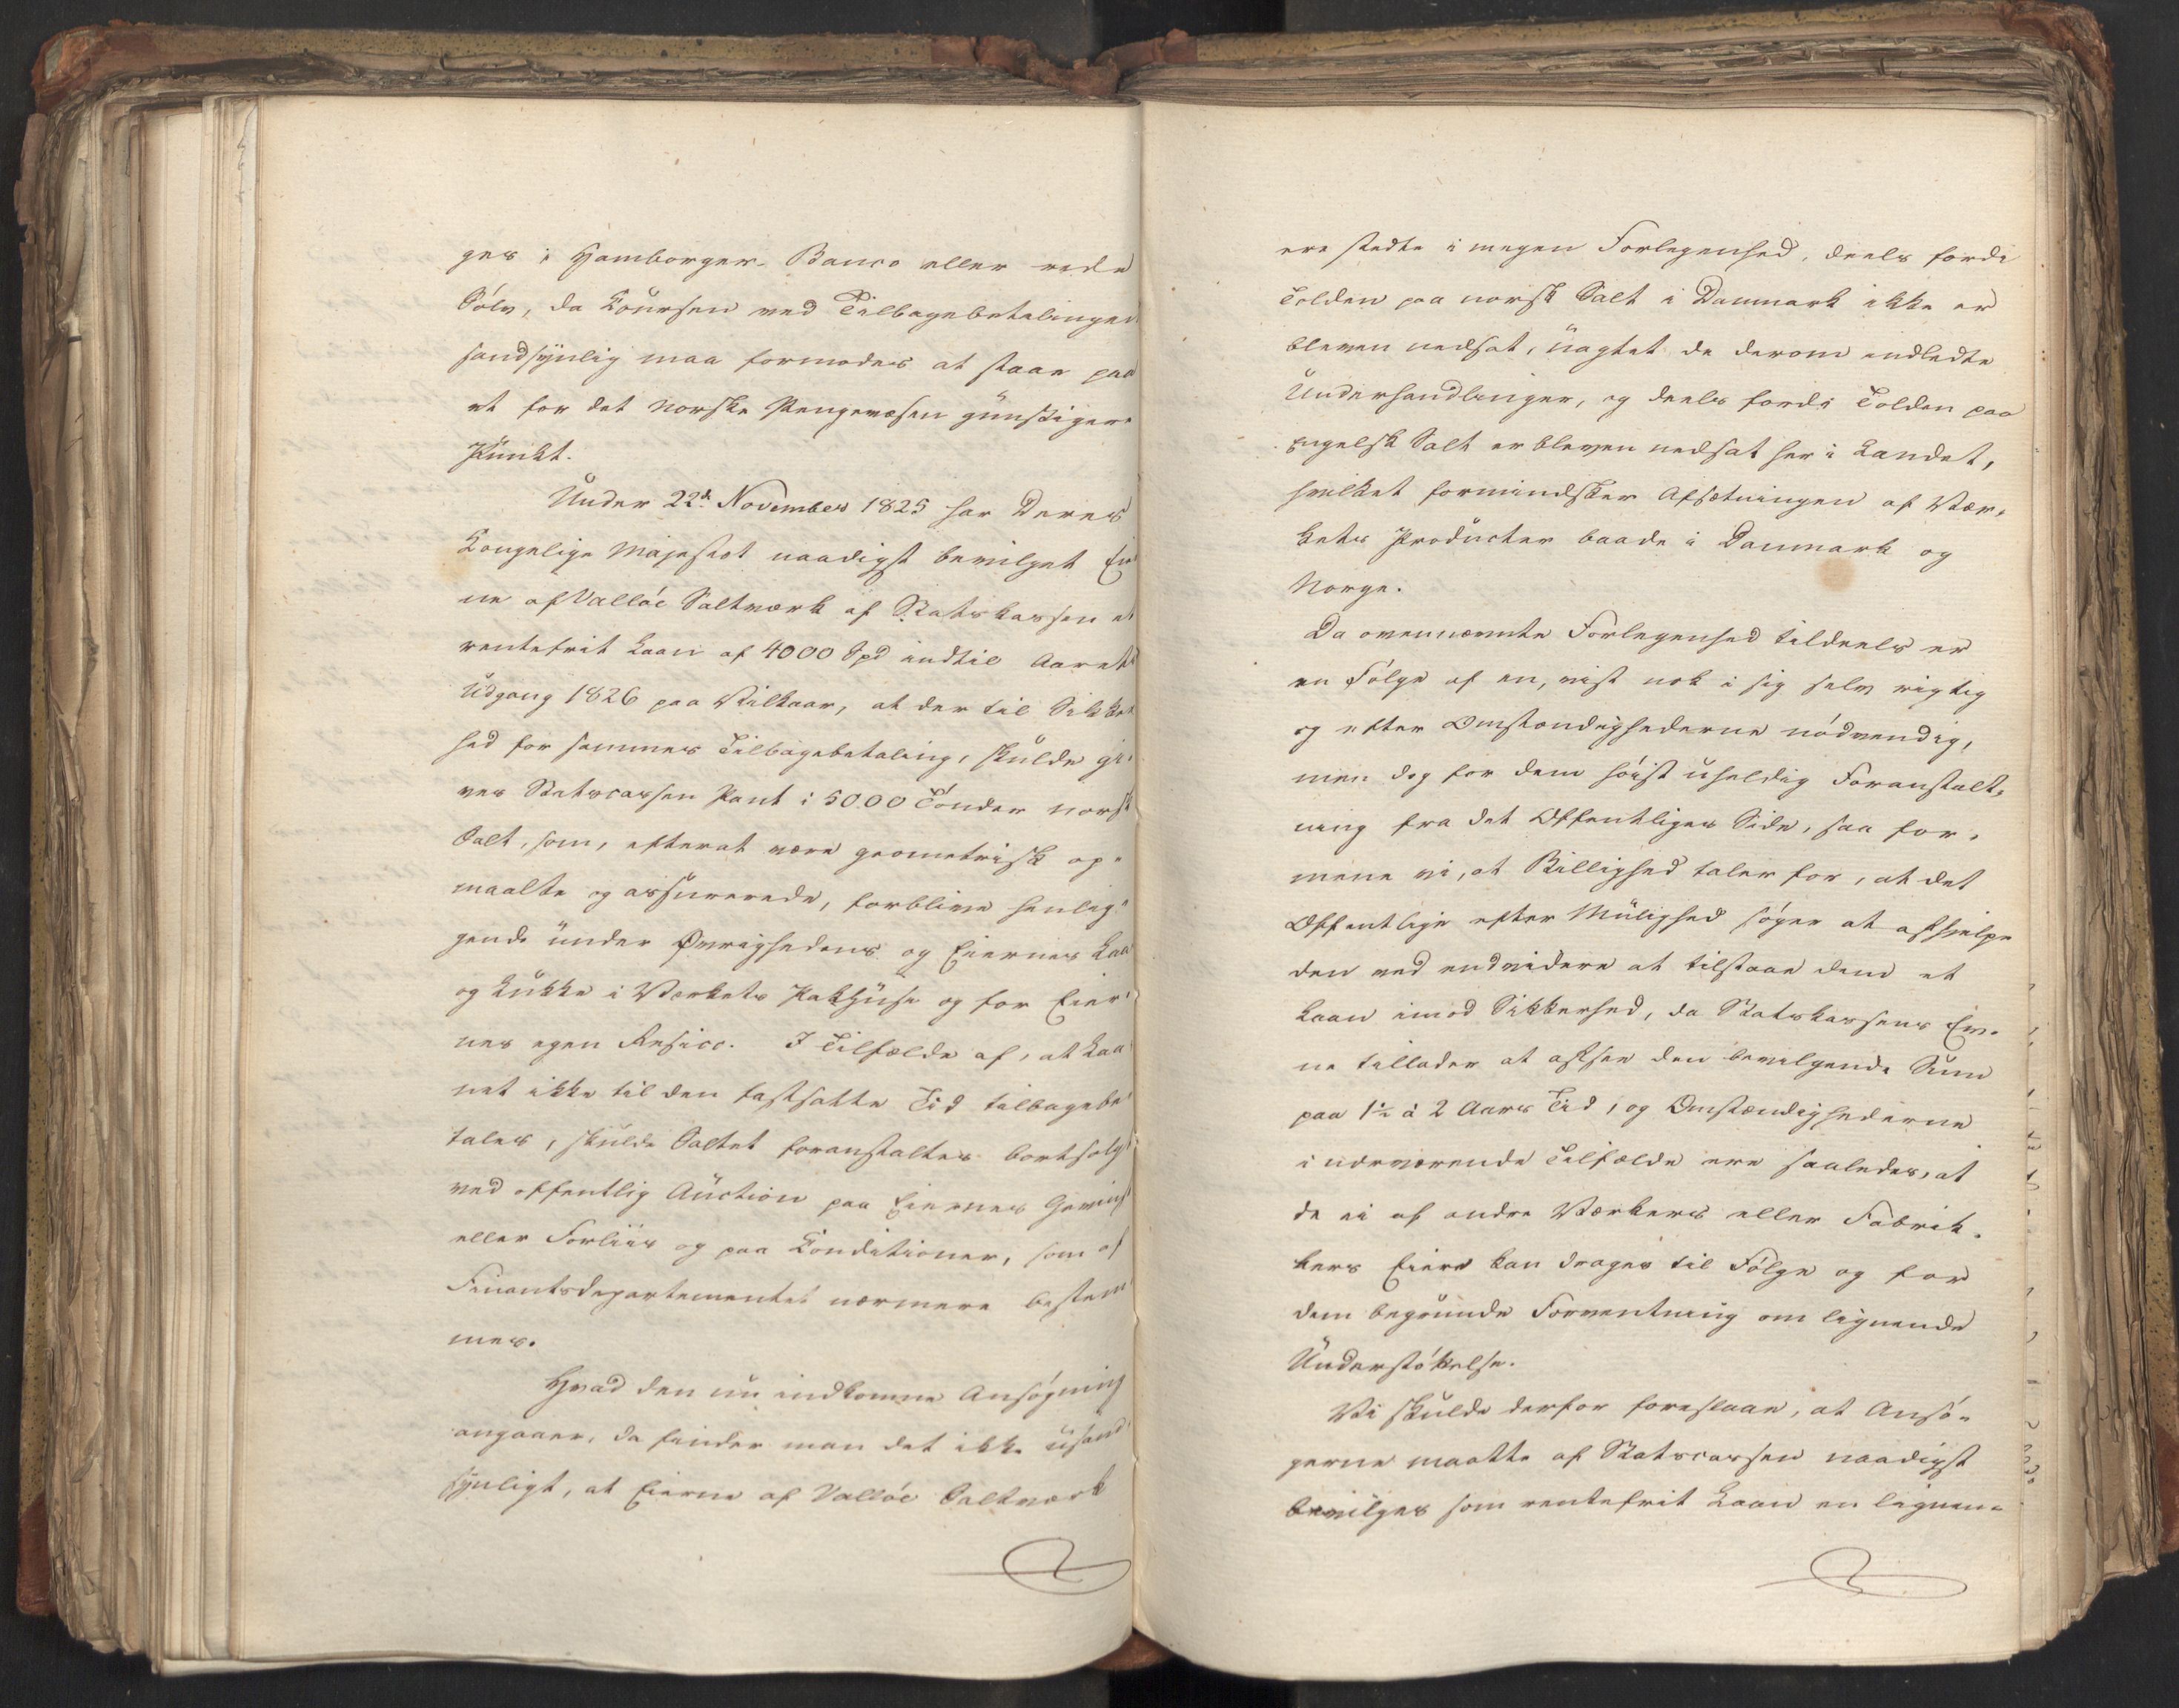 ges i Hamborger Banco eller rede
Sölv, da Coursen ved Tilbagebetalingen
sandsynlig maa formodes at staae paa
et for det norske Pengevæsen günstigere
Pünkt.
Under 22d November 1825 har Deres
Kongelige Majestæt naadigst bevilget Eier
ne af Vallöe Saltværk af Statskassen et
rentefrit Laan af 4000 Spd indtil Aarets
Udgang 1826 paa Vilkaar, at der til Sikker
hed for sammes Tilbagebetaling, skulde gi-
ves Statscassen Pant i 5000 Tönder norsk
Salt, som, efterat være geometrisk op-
maalte og assurerede, forblive henlig-
gende under Øvrighedens og Eiernes Laas
og Lükke i Værkets Pakhüse og for Eier-
nes egen Resico. I Tilfælde af, at Laa
net ikke til den fastsatte Tid tilbagebe-
tales, skulde Saltet foranstaltes bortsolgt
ved offentlig Auction paa Eiernes Gevinst
eller Forliis og paa Conditioner, som af
Finantsdepartementet nærmere bestem
mes.
Hvad den nu indkomne Ansögning
angaaer, da finder man det ikke usand
synligt, at Eierne af Vallöe Saltværk
ere stedte i megen Forlegenhed, deels fordi
Tolden paa norsk Salt i Danmark ikke er
bleven nedsat, uagtet de derom indledte
Underhandlinger, og deels fordi Tolden paa
Engelsk Salt er bleven nedsat her i Landet,
hvilket formindsker Afsætningen af Vær-
kets Producter baade i Danmark og
Norge.
Da ovennævnte Forlegenhed tildeels er
en Fölge af en, vist nok i sig selv rigtig
og efter Omstændighederne nödvendig,
men dog for dem höist uheldig Foranstalt-
ning fra det Offentliges Side, saa for-
mene vi, at Billighed taler for, at det
Offentlige efter Mülighed söger at afhjelpe
den ved endvidere at tilstaae dem et
Laan imod Sikkerhed, da Statskassens Ev-
ne tillader at afsee den bevilgende Sum
paa 1½ à 2 Aars Tid, og Omstændighederne
i nærværende Tilfælde ere saaledes, at
de ei af andre Værkers eller Fabrik-
kers Eiere kan drages til Fölge og for
dem begrunde Forventning om lignende
Understöttelse.
Vi skulde derfor foreslaae, at Ansö-
gerne maatte af Statscassen naadigst
bevilges som rentefrit Laan en lignen-